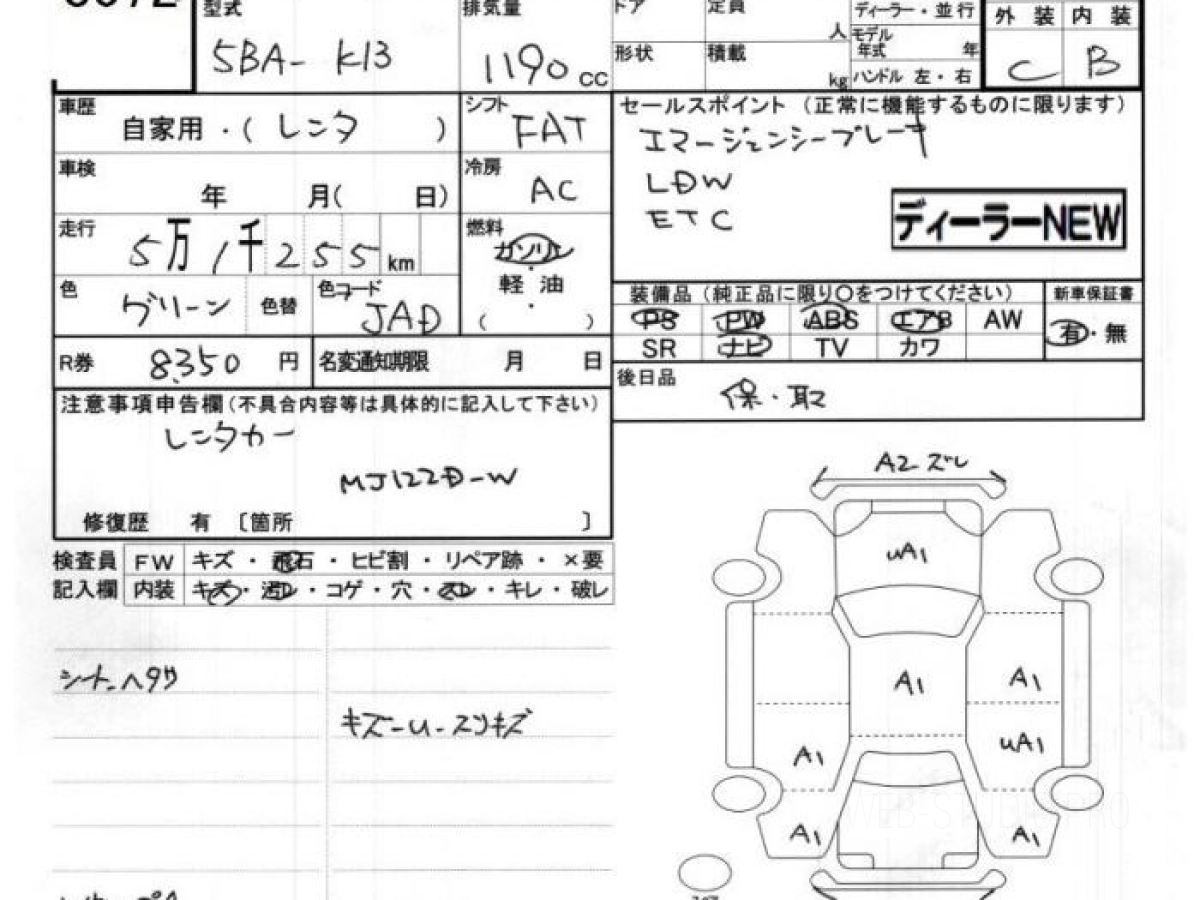 型式 排気量 ドア 定員 人 ディーラー・並行
外装 内装
5BA- K13 1190 cc 形状 積載 kg モデル年式 年
ハンドル 左・右 C B
車歴 自家用・(レンタ) シフト FAT
セールスポイント (正常に機能するものに限ります)
エマージェンシーブレーキ
車検 年 月( 日) 冷房 AC
LDW
ETC
ディーラーNEW
走行 5万1千255 km
燃料 ガソリン
軽油
( )
色 グリーン 色替 色コード JAD
装備品 (純正品に限り〇をつけてください) 新車保証書
PS PW ABS エアB AW 有・無
SR ナビ TV カワ
R券 8350 円 名変通知期限 月 日
後日品 保・取
注意事項申告欄(不具合内容等は具体的に記入して下さい)
レンタカー
MJ122D-W
修復歴 有 〔箇所 〕
検査員 FW キズ・飛石・ヒビ割・リペア跡・×要
記入欄 内装 キズ・汚レ・コゲ・穴・スレ・キレ・破レ
A2 ズレ
uA1
シート ヘタリ
A1 A1
キズ-U-スリキズ
A1 uA1
A1 A1
WEB-STUDIO.PRO